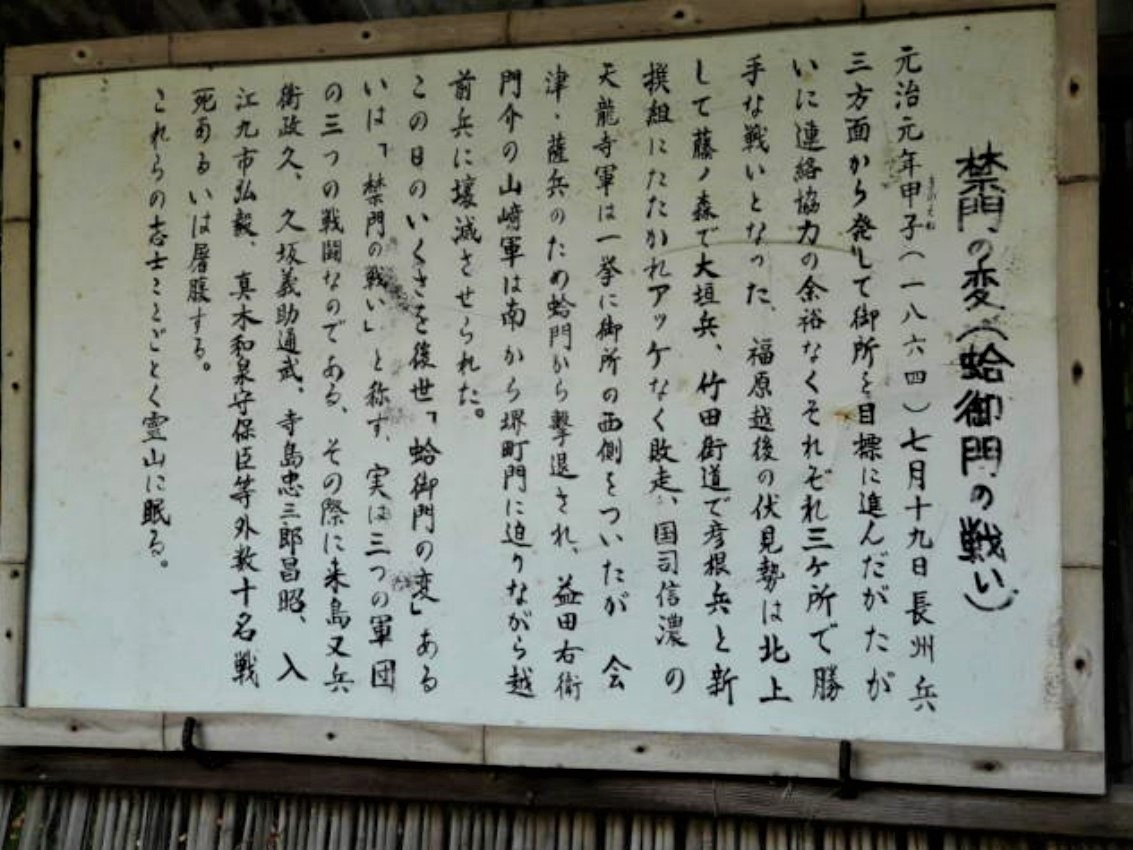 禁門の変(蛤御門の戦い)
元治元年甲子(一八六四)七月十九日長州兵
きのえね
三方面から発して御所を目標に進んだがたが
いに連絡協力の余裕なくそれぞれ三ケ所で勝
手な戦いとなった、福原越後の伏見勢は北上
して藤ノ森で大垣兵、竹田街道で彦根兵と新
撰組にたたかれアッケなく敗走、国司信濃の
天龍寺軍は一挙に御所の西側をついたが 会
津・薩兵のため蛤門から撃退され、益田右衛
門介の山崎軍は南から堺町門に迫りながら越
前兵に壊滅させられた。
この日のいくさを後世「蛤御門の変」ある
いは「禁門の戦い」と称す、実は三つの軍団
の三つの戦闘なのである、その際に来島又兵
衛政久、久坂義助通武、寺島忠三郎昌昭、入
江九市弘毅、真木和泉守保臣等外数十名戦
死あるいは屠腹する。
これらの志士ことごとく霊山に眠る。